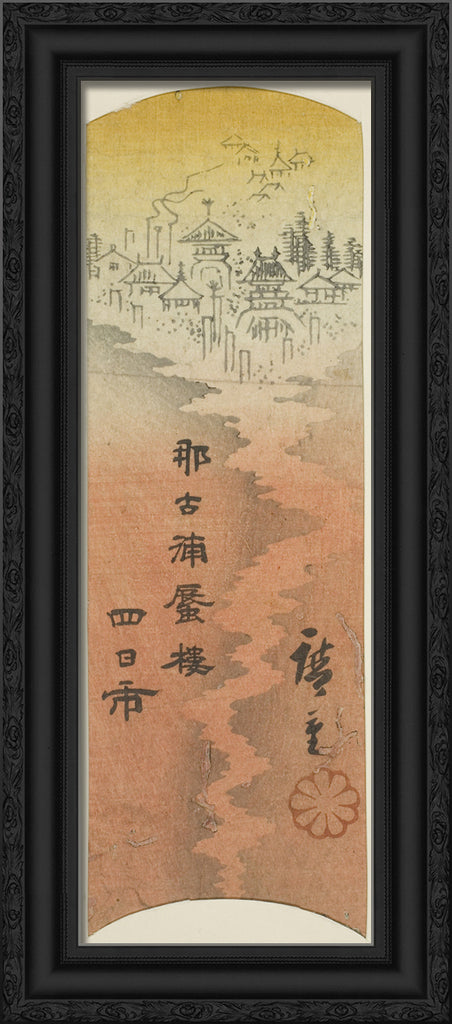 那古浦蜃樓
四日市
廣重